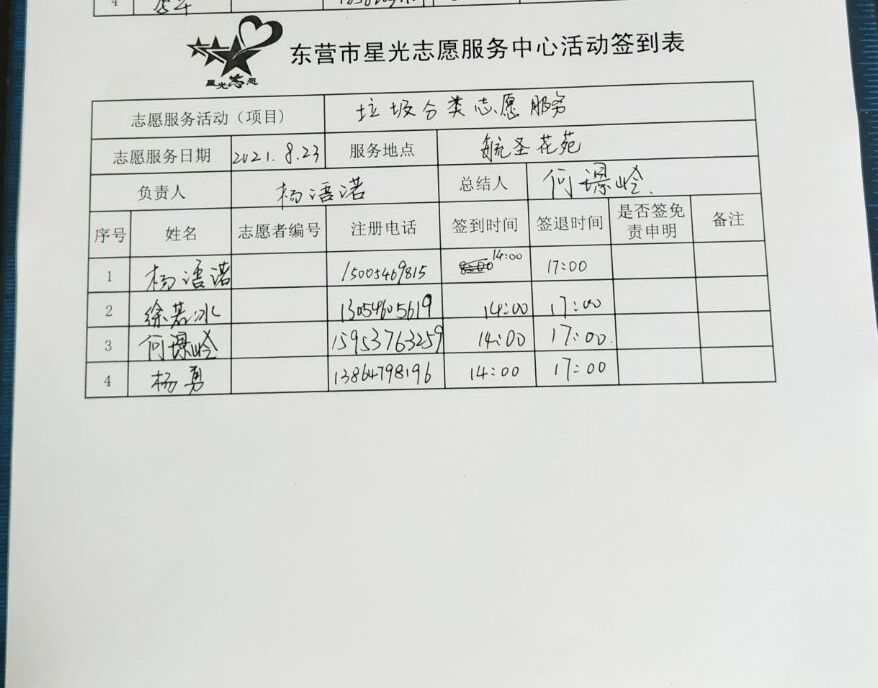 4
星光志愿
东营市星光志愿服务中心活动签到表
志愿服务活动（项目） 垃圾分类志愿服务
志愿服务日期 2021.8.23 服务地点 航圣花苑
负责人 杨语诺 总结人 何璟岭
序号 姓名 志愿者编号 注册电话 签到时间 签退时间 是否签免责申明 备注
1 杨语诺 15005469815 14:00 17:00
2 徐若冰 13054605619 14:00 17:00
3 何璟岭 15953763259 14:00 17:00
4 杨勇 13864798196 14:00 17:00